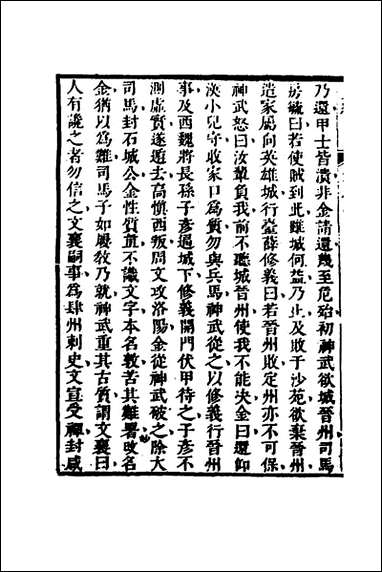 乃還甲士皆潰非金請還幾至危殆初神武欲城晉州司馬
房毓曰若使賊到此雖城何益乃止及敗于沙苑欲棄晉州
遣家屬向英雄城行臺薛修義曰若晉州敗定州亦不可保
神武怒曰汝輩負我前不聽城晉州使我不能決金曰還仰
漢小兒守收家口為質勿與兵馬神武從之以修義行晉州
事及西魏將長孫子彥逼城下修義開門伏甲待之子彥不
測虛實遂遁去高慎西叛周文攻洛陽金從神武破之除大
司馬封石城公金性質直不識文字本名敦苦其難署改名
金猶以為難司馬子如屢教乃就神武重其古質謂文襄曰
人有讒之者勿信之文襄嗣事為肆州刺史文宣受禪封咸